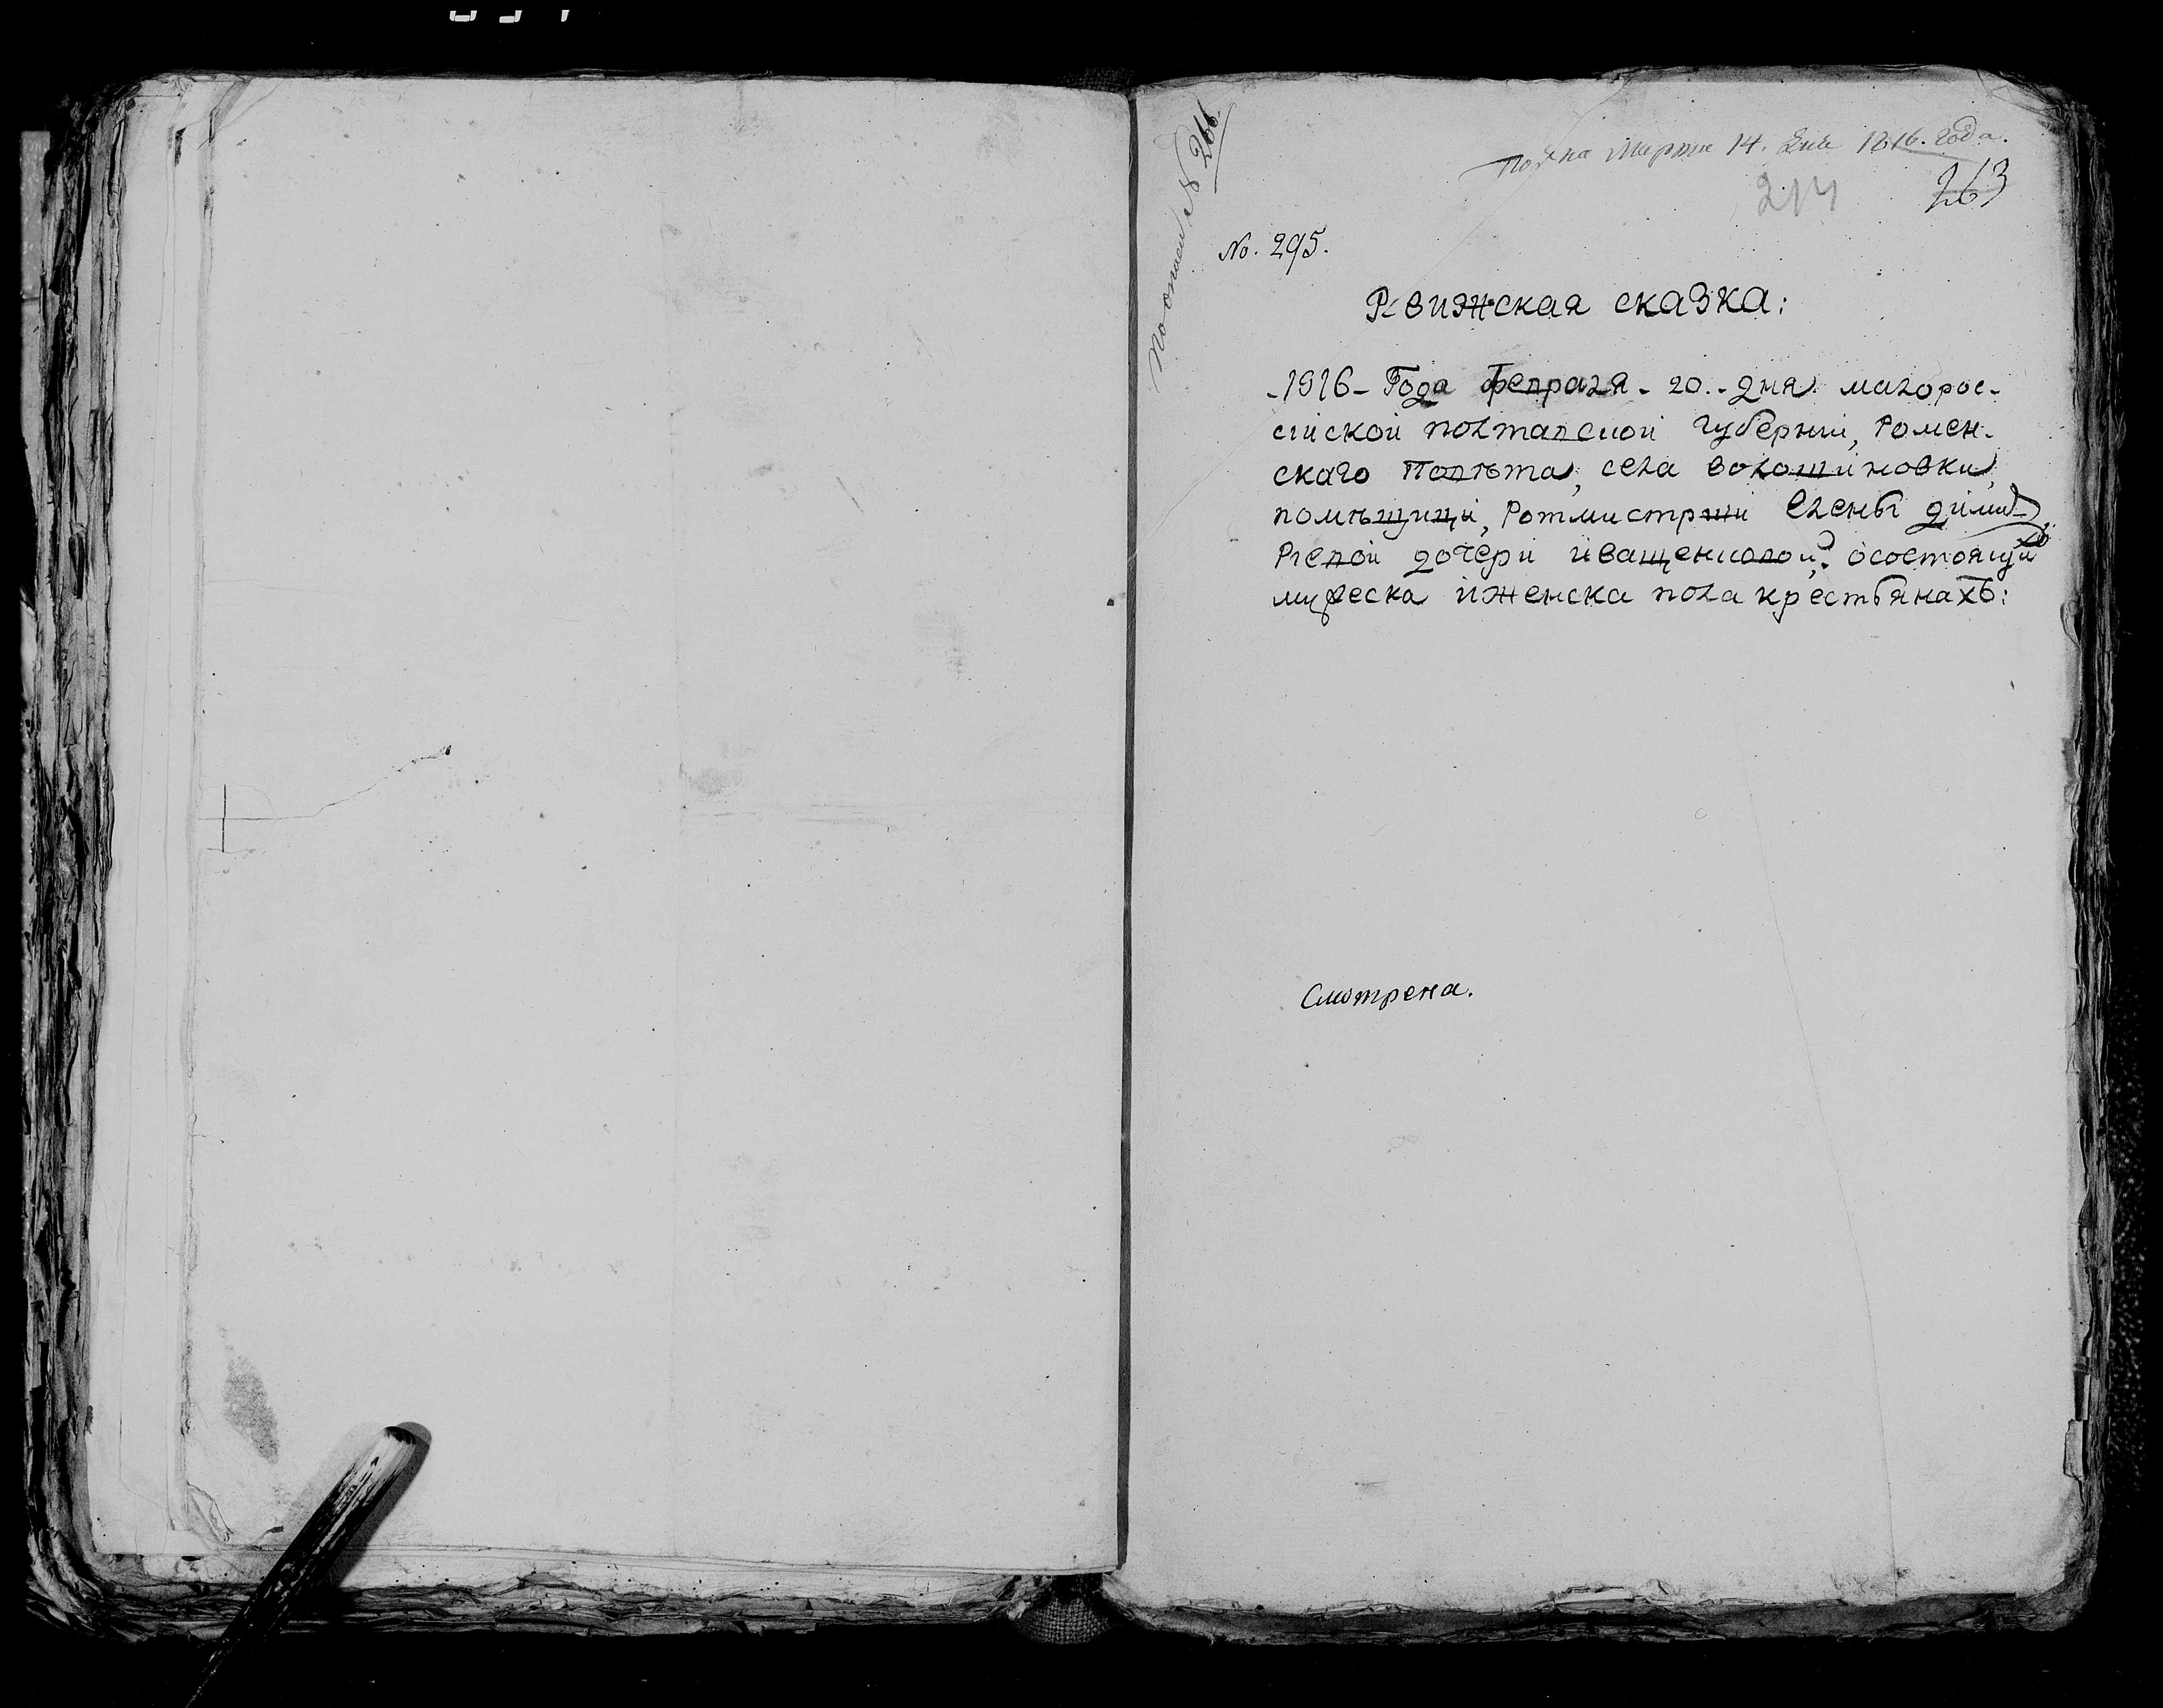 по описи № 266.
Под: на Марта 14. дня 1816. года.
214 263
No. 295.
Ревижская сказка:
-1816- Года февраля - 20. - дня малорос-
сійской полтавской губерніи, Ромен-
скаго Повѣта, села волошиновки,
помѣщици, Ротмистрши Елены дими-
Ріевой дочери иващенковой: осостоящихъ
мужеска иженска пола крестьянахъ:
Смотрена.